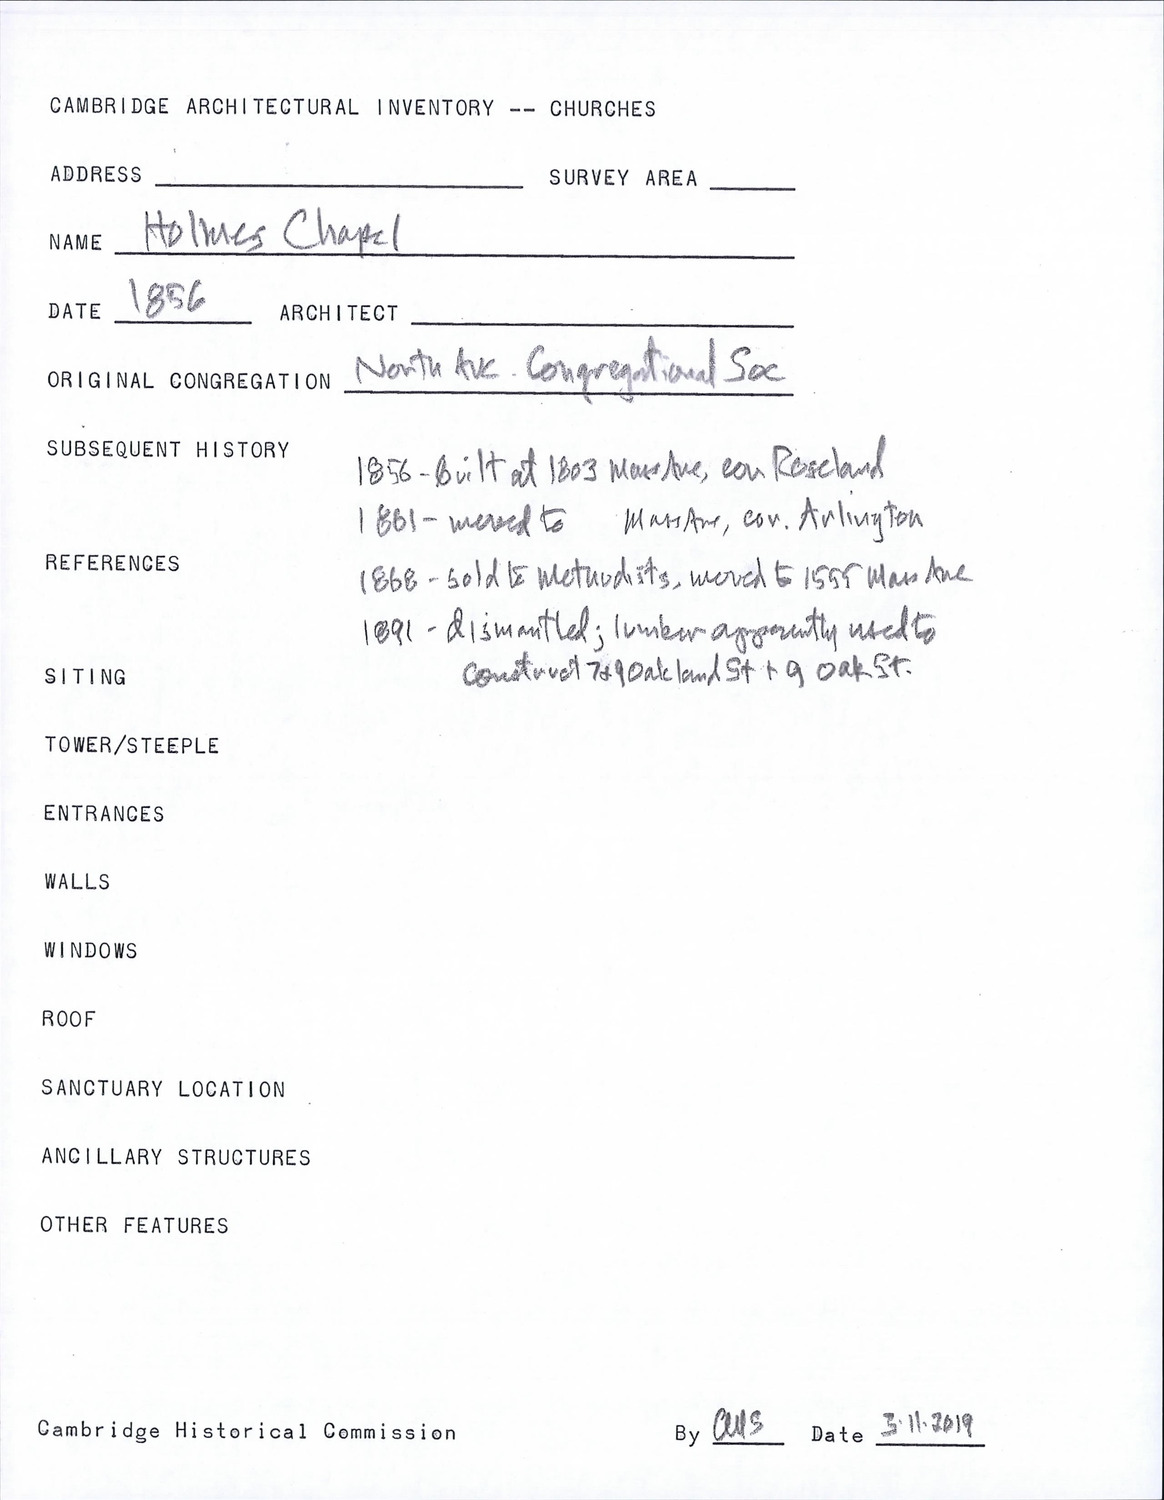 CAMBRIDGE ARCHITECTURAL INVENTORY -- CHURCHES
ADDRESS SURVEY AREA
NAME Holmes Chapel
DATE 1856 ARCHITECT
ORIGINAL CONGREGATION North Ave. Congregational Soc
SUBSEQUENT HISTORY
1856 - Built at 1803 Mass Ave, cor Roseland
1861 - moved to Mass Ave, cor. Arlington
REFERENCES
1868 - sold to Methodists, moved to 1555 Mass Ave
1891 - dismantled; lumber apparently used to
construct 7+9 Oakland St + 9 Oak St.
SITING
TOWER/STEEPLE
ENTRANCES
WALLS
WINDOWS
ROOF
SANCTUARY LOCATION
ANCILLARY STRUCTURES
OTHER FEATURES
Cambridge Historical Commission By Date 3.11.2019